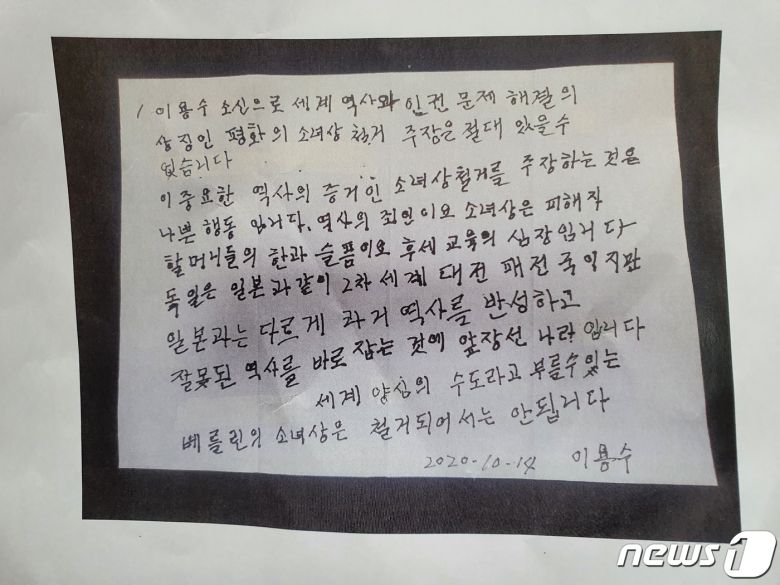 이용수 소신으로 세계 역사와 인권 문제 해결의
상징인 평화의 소녀상 철거 주장은 절대 있을수
없습니다
이 중요한 역사의 증거인 소녀상철거를 주장하는 것은
나쁜 행동 입니다. 역사의 죄인이요 소녀상은 피해자
할머니들의 한과 슬픔이요 후세 교육의 심장입니다
독일은 일본과같이 2차 세계 대전 패전 국이지만
일본과는 다르게 과거 역사를 반성하고
잘못된 역사를 바로 잡는 것에 앞장선 나라 입니다
세계 양심의 수도라고 부를수있는
베를린의 소녀상은 철거되어서는 안됩니다
2020-10-14 이용수
news1